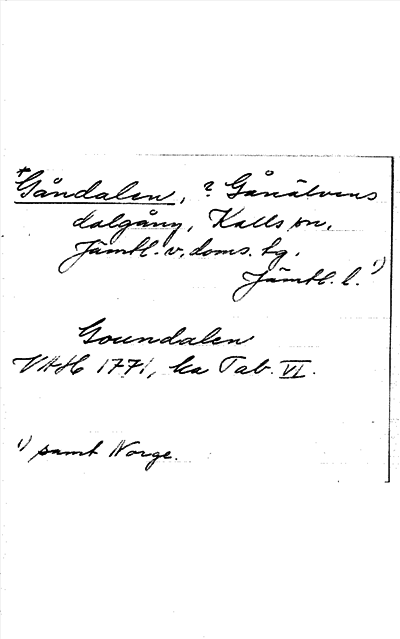 *Gåndalen, ? Gånälvens
dalgång, Kalls sn,
Jämtl. v. doms. tg.
Jämtl. l. 1)
Goundalen
VAH 1771, ka Tab. VI.
1) samt Norge.